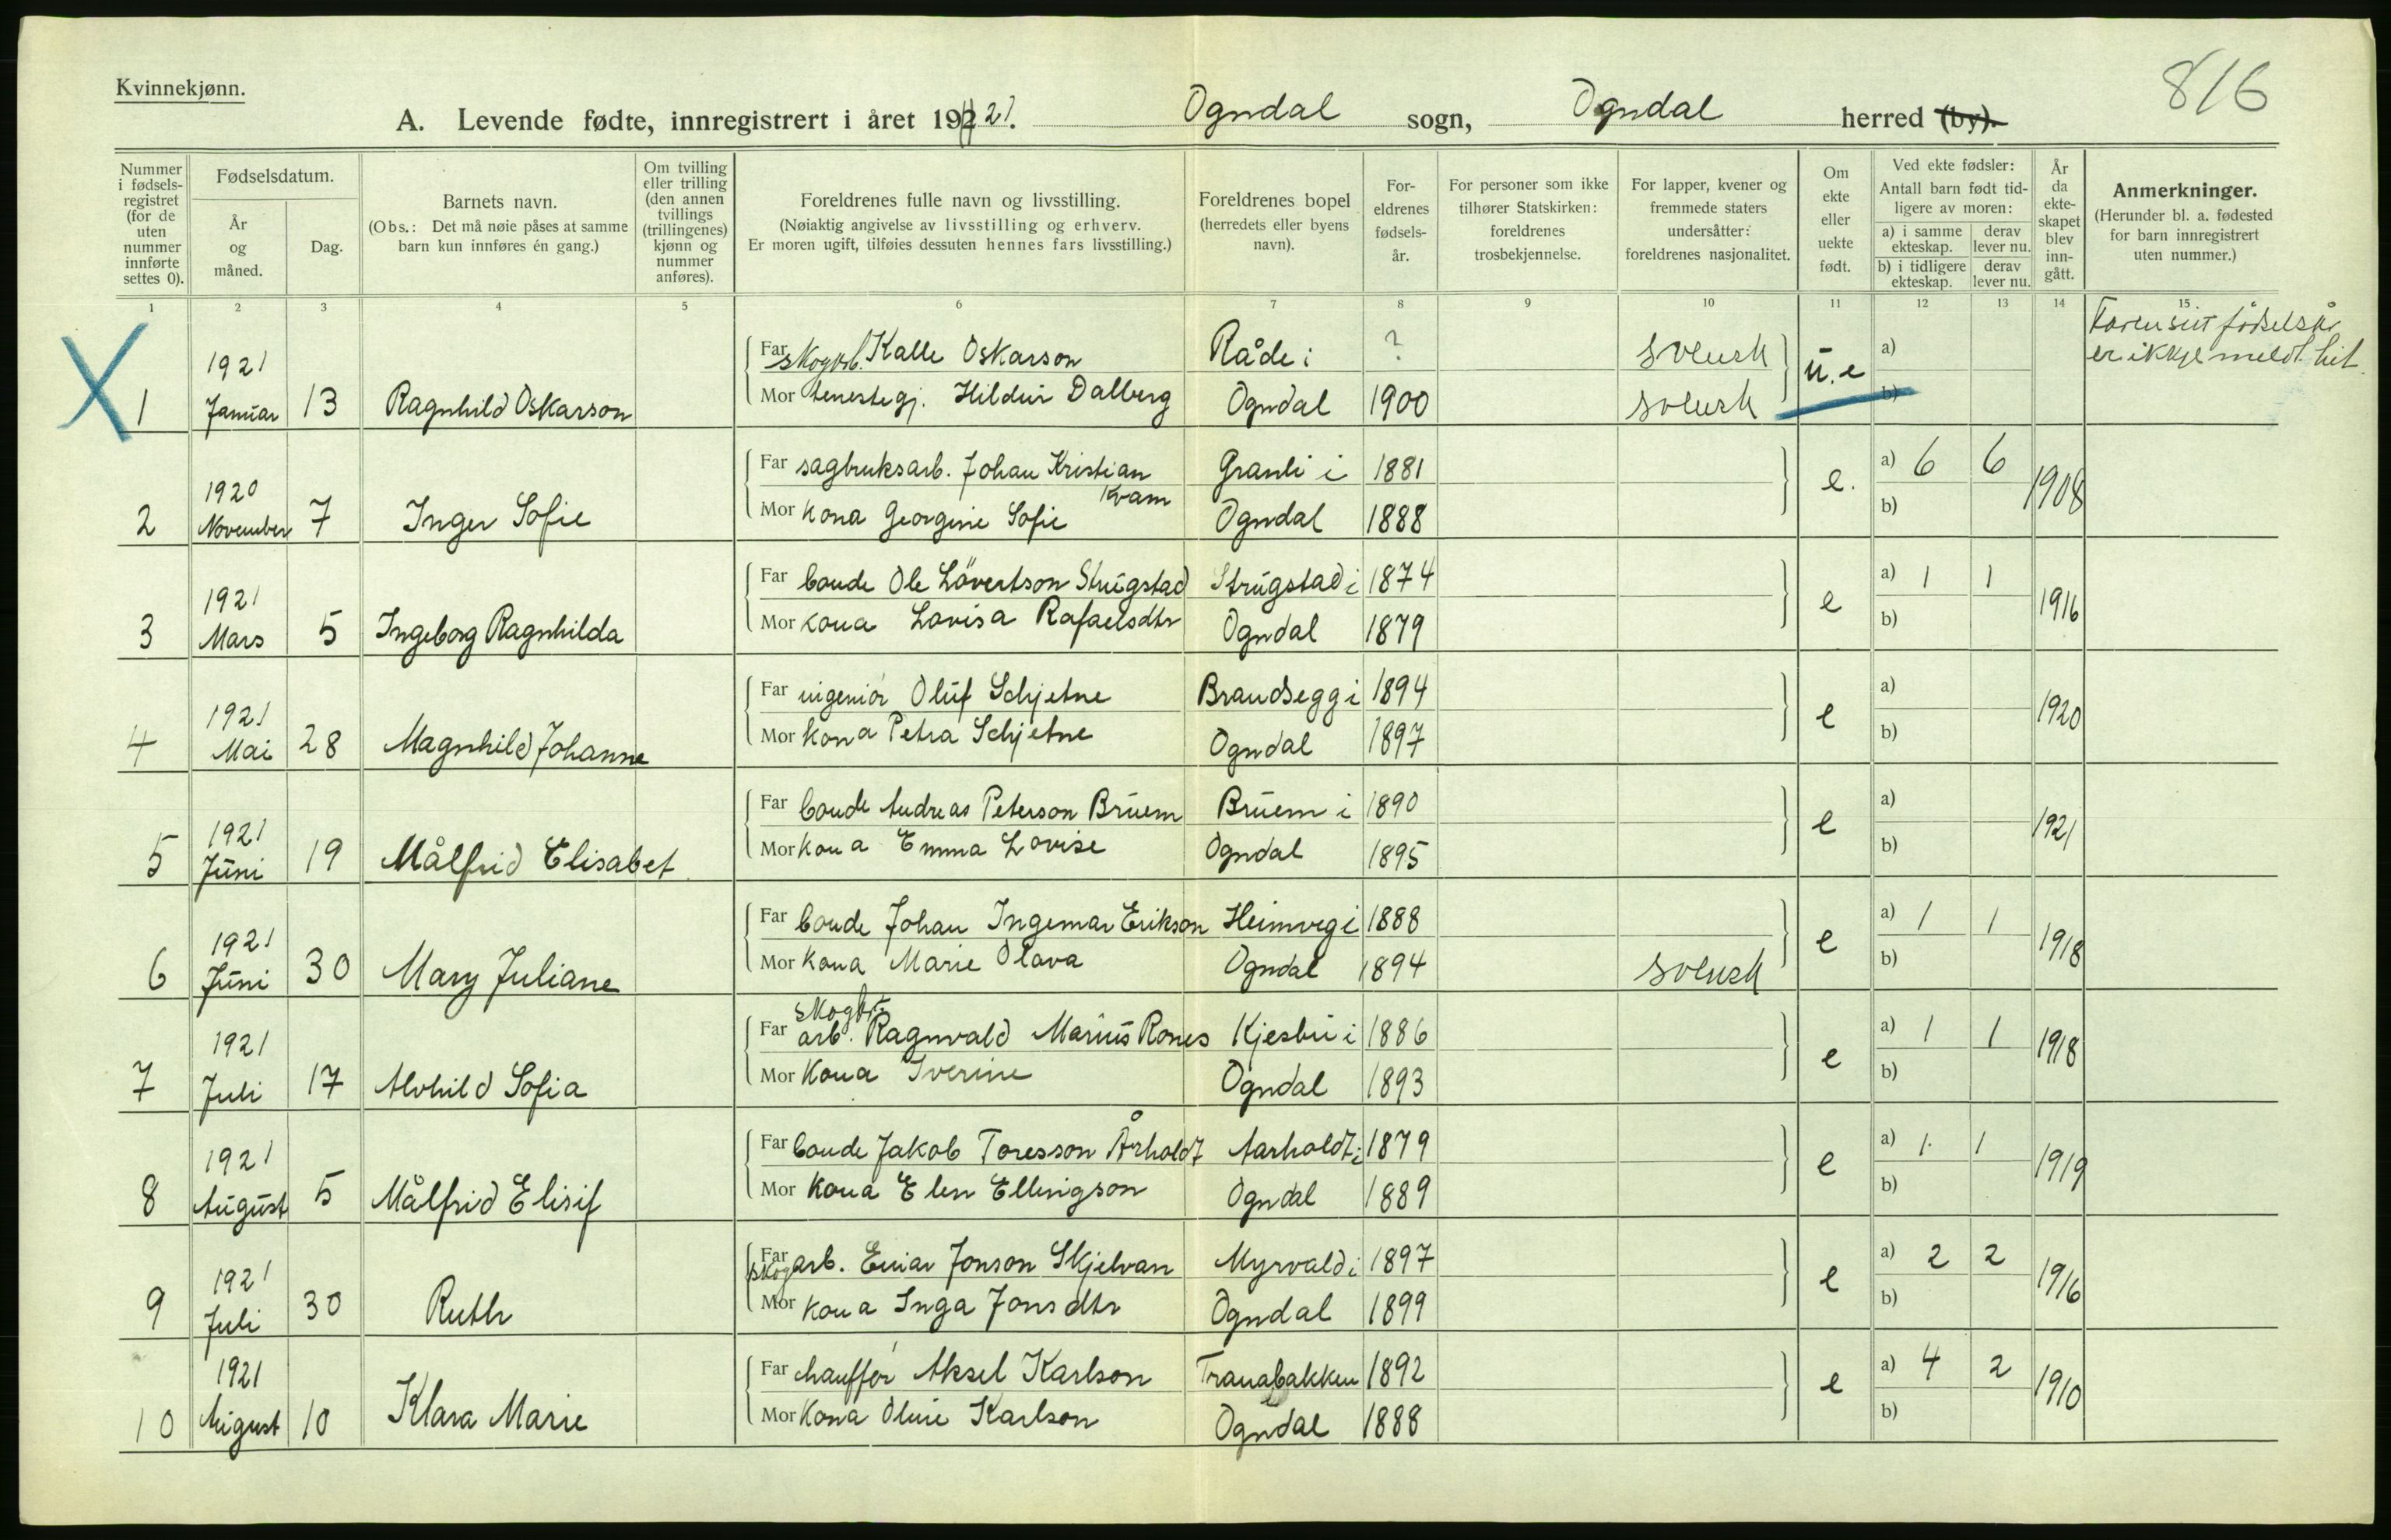 Kvinnekjønn.
816
A. Levende fødte, innregistrert i året 1921. Ogndal sogn, Ogndal herred (by).
Nummer i fødselsregistret (for de uten nummer innførte settes 0).
Fødselsdatum.
År og måned.
Dag.
Barnets navn.
(Obs.: Det må nøie påses at samme barn kun innføres én gang.)
Om tvilling eller trilling (den annen tvillings (trillingenes) kjønn og nummer anføres).
Foreldrenes fulle navn og livsstilling.
(Nøiaktig angivelse av livsstilling og erhverv.
Er moren ugift, tilføies dessuten hennes fars livsstilling.)
Foreldrenes bopel (herredets eller byens navn).
Foreldrenes fødselsår.
For personer som ikke tilhører Statskirken: foreldrenes trosbekjennelse.
For lapper, kvener og fremmede staters undersåtter: foreldrenes nasjonalitet.
Om ekte eller uekte født.
Ved ekte fødsler:
Antall barn født tidligere av moren:
a) i samme ekteskap. derav lever nu.
b) i tidligere ekteskap. derav lever nu.
År da ekteskapet blev inngått.
Anmerkninger.
(Herunder bl. a. fødested for barn innregistrert uten nummer.)
1 2 3 4 5 6 7 8 9 10 11 12 13 14 15
X 1 1921 Januar 13 Ragnhild Oskarson
Far skogarb. Kalle Oskarson Råde i ? svensk u.e a)
Mor tenestegj. Hildur Dalberg Ogndal 1900 svensk b)
Faren sitt fødselsår
er ikkje meldt hit.
2 1920 November 7 Inger Sofie
Far sagbruksarb. Johan Kristian Kvam Granli i 1881 e. a) 6 6 1908
Mor Kona Georgine Sofie Ogndal 1888 b)
3 1921 Mars 5 Ingeborg Ragnhilda
Far bonde Ole Lövertson Strugstad Strugstad i 1874 e a) 1 1 1916
Mor Kona Lovisa Rafaelsdtr Ogndal 1879 b)
4 1921 Mai 28 Magnhild Johanne
Far ingeniör Oluf Schjetne Brandsegg i 1894 e a) 1920
Mor Kona Petra Schjetne Ogndal 1897 b)
5 1921 Juni 19 Målfrid Elisabet
Far bonde Andreas Peterson Bruem Bruem i 1890 e a) 1921
Mor Kona Emma Lovise Ogndal 1895 b)
6 1921 Juni 30 Mary Juliane
Far bonde Johan Ingemar Erikson Heimveg i 1888 e a) 1 1 1918
Mor Kona Marie Olava Ogndal 1894 svensk b)
7 1921 Juli 17 Alvhild Sofia
Far arb. Ragnvald Marius Rones Kjesbu i 1886 e a) 1 1 1918
Mor Kona Iverine Ogndal 1893 b)
8 1921 August 5 Målfrid Elisif
Far bonde Jakob Toresson Århold t Aarholdt i 1879 e a) 1 1 1919
Mor Kona Elen Ellingson Ogndal 1889 b)
9 1921 Juli 30 Ruth
Far skogarb. Einar Jonson Skjelvan Myrvald i 1897 e a) 2 2 1916
Mor Kona Inga Jonsdtr Ogndal 1899 b)
10 1921 August 10 Klara Marie
Far chauffør Aksel Karlson Tranabakken 1892 e a) 4 2 1910
Mor Kona Oline Karlson Ogndal 1888 b)